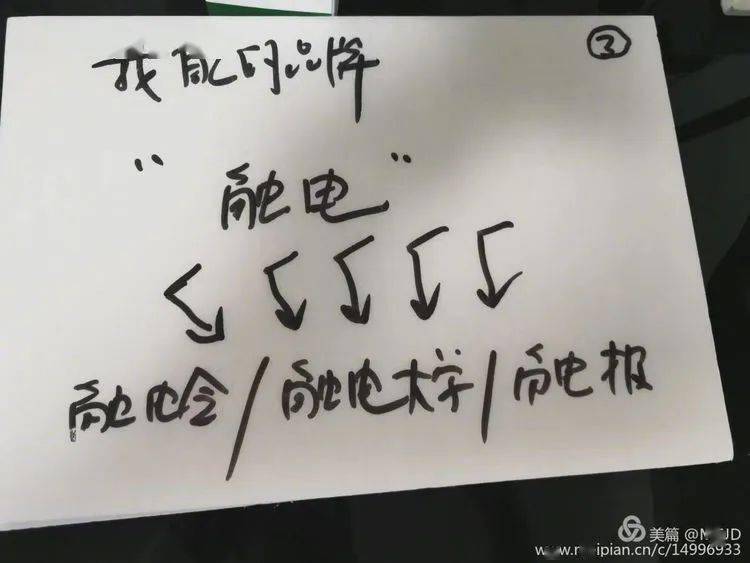 ③
我们的品牌
"融电"
融电会/融电大学/融电报
美篇 @M
www.meipian.cn/c/14996933